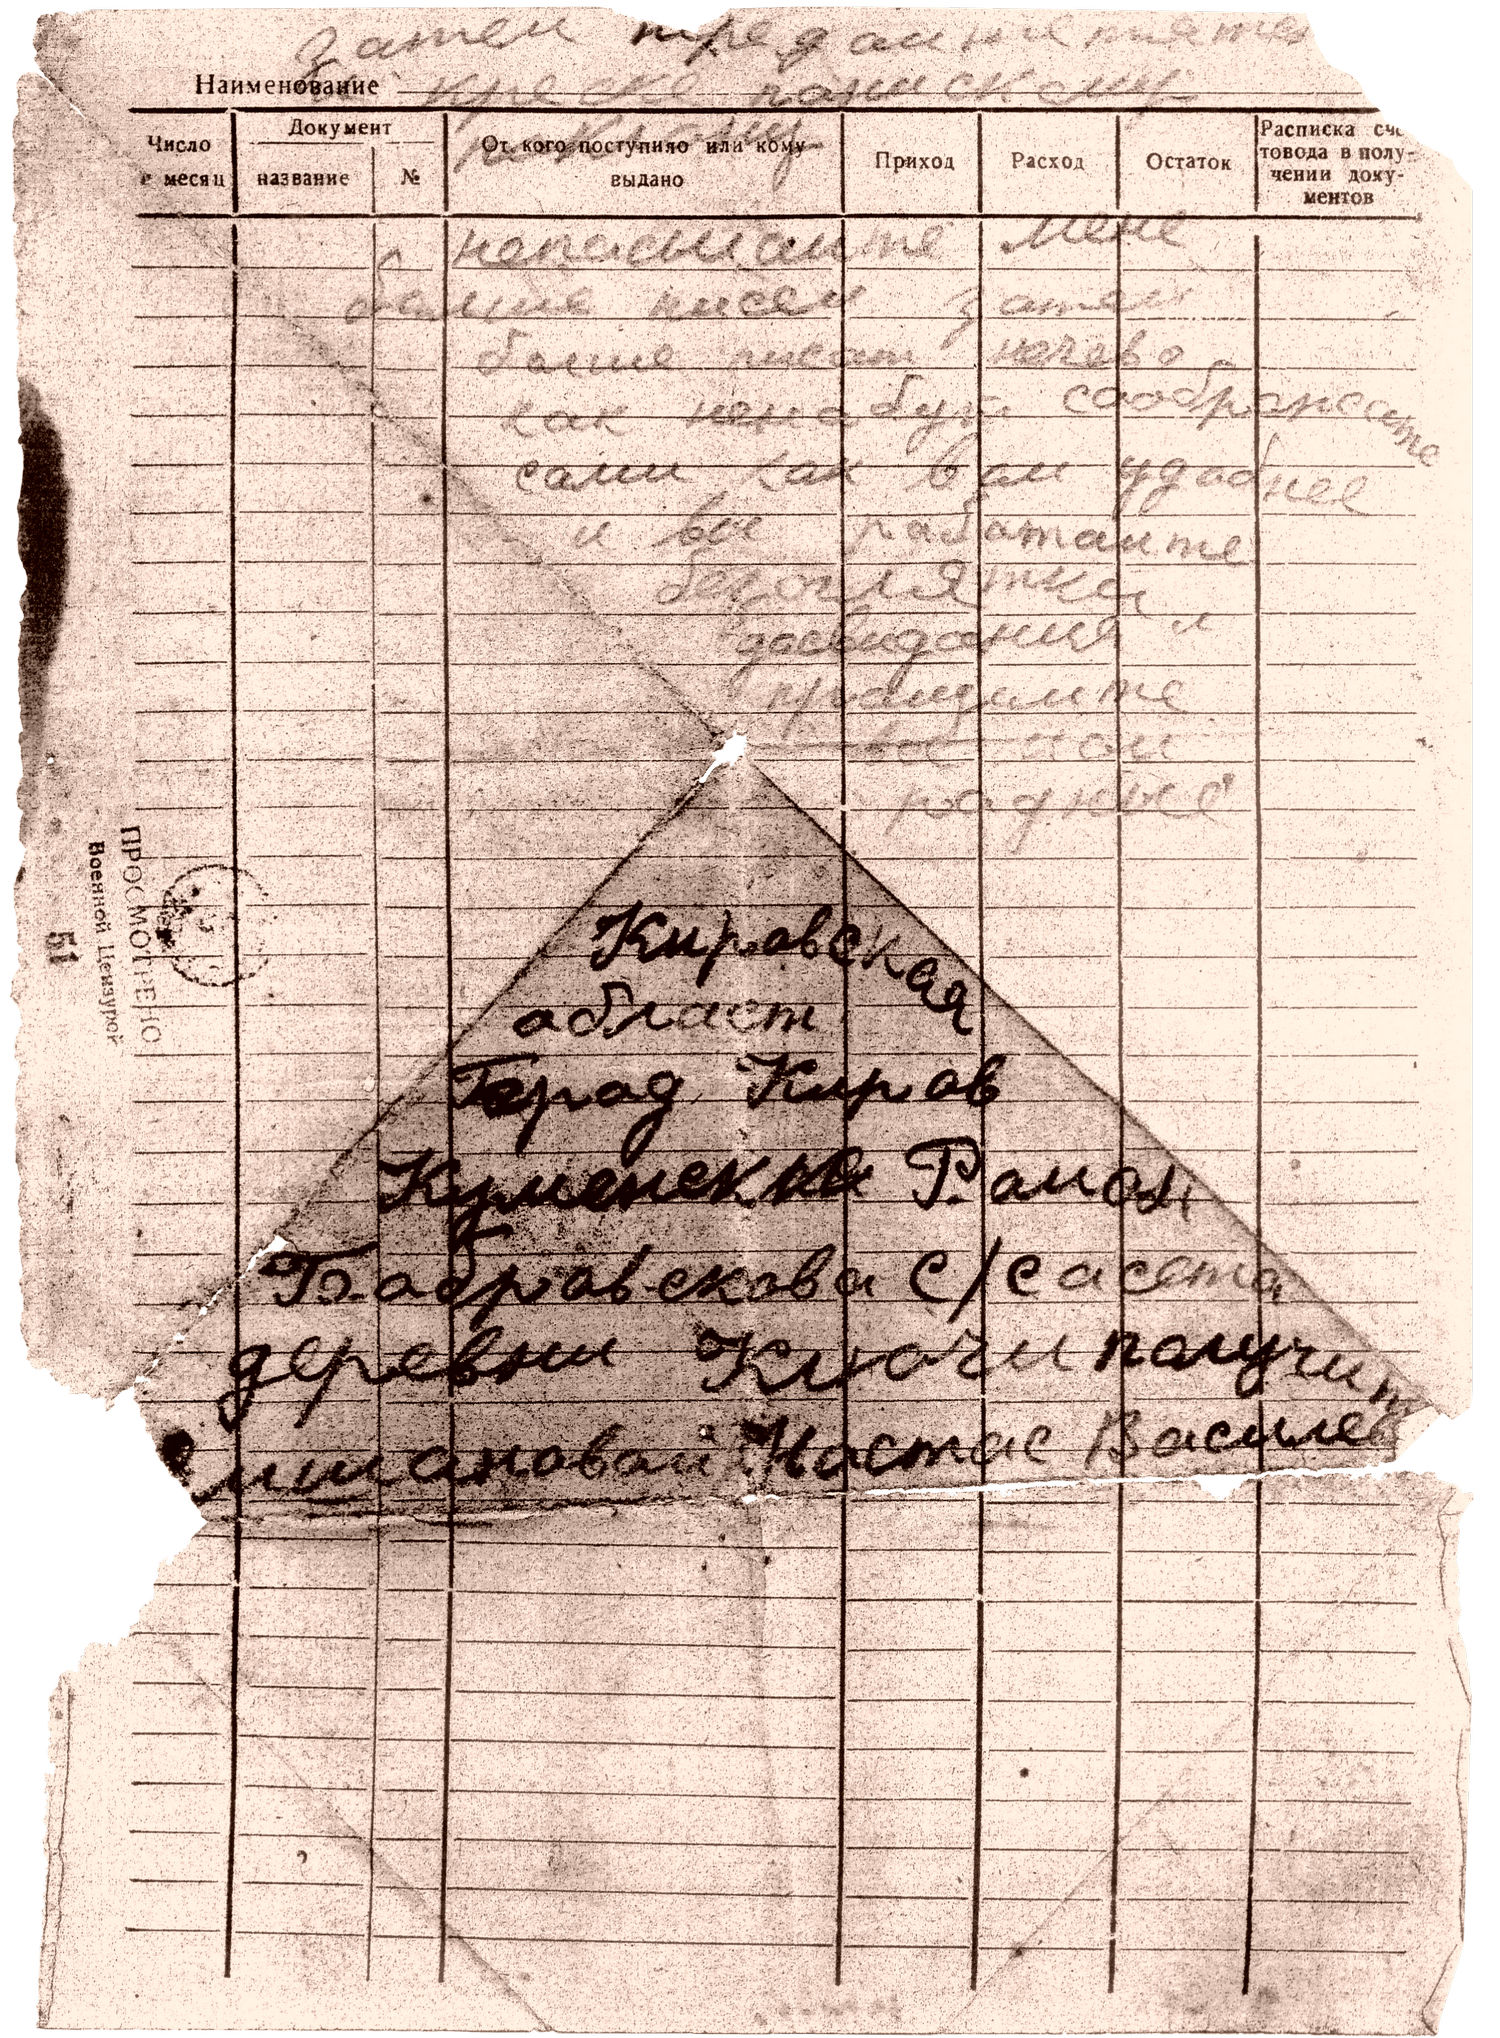 затем
Наименование
Число
и месяц
Документ
название
№
От кого поступило или кому
выдано
Приход
Расход
Остаток
Расписка сче
товода в полу-
чении доку-
ментов
непасылайте мене
болше писем затем
болше писат нечево
как нибуд соображайте
сами как вам удобнее
и все работайте
досвидания
прощайте
все мои
родные
ПРОСМОТРЕНО
Военной Цензурой
51
Кировская
област
Город Киров
Куменскка Раион
Бабровскова С/Сасета
деревни Ключи получит
Настас Василев